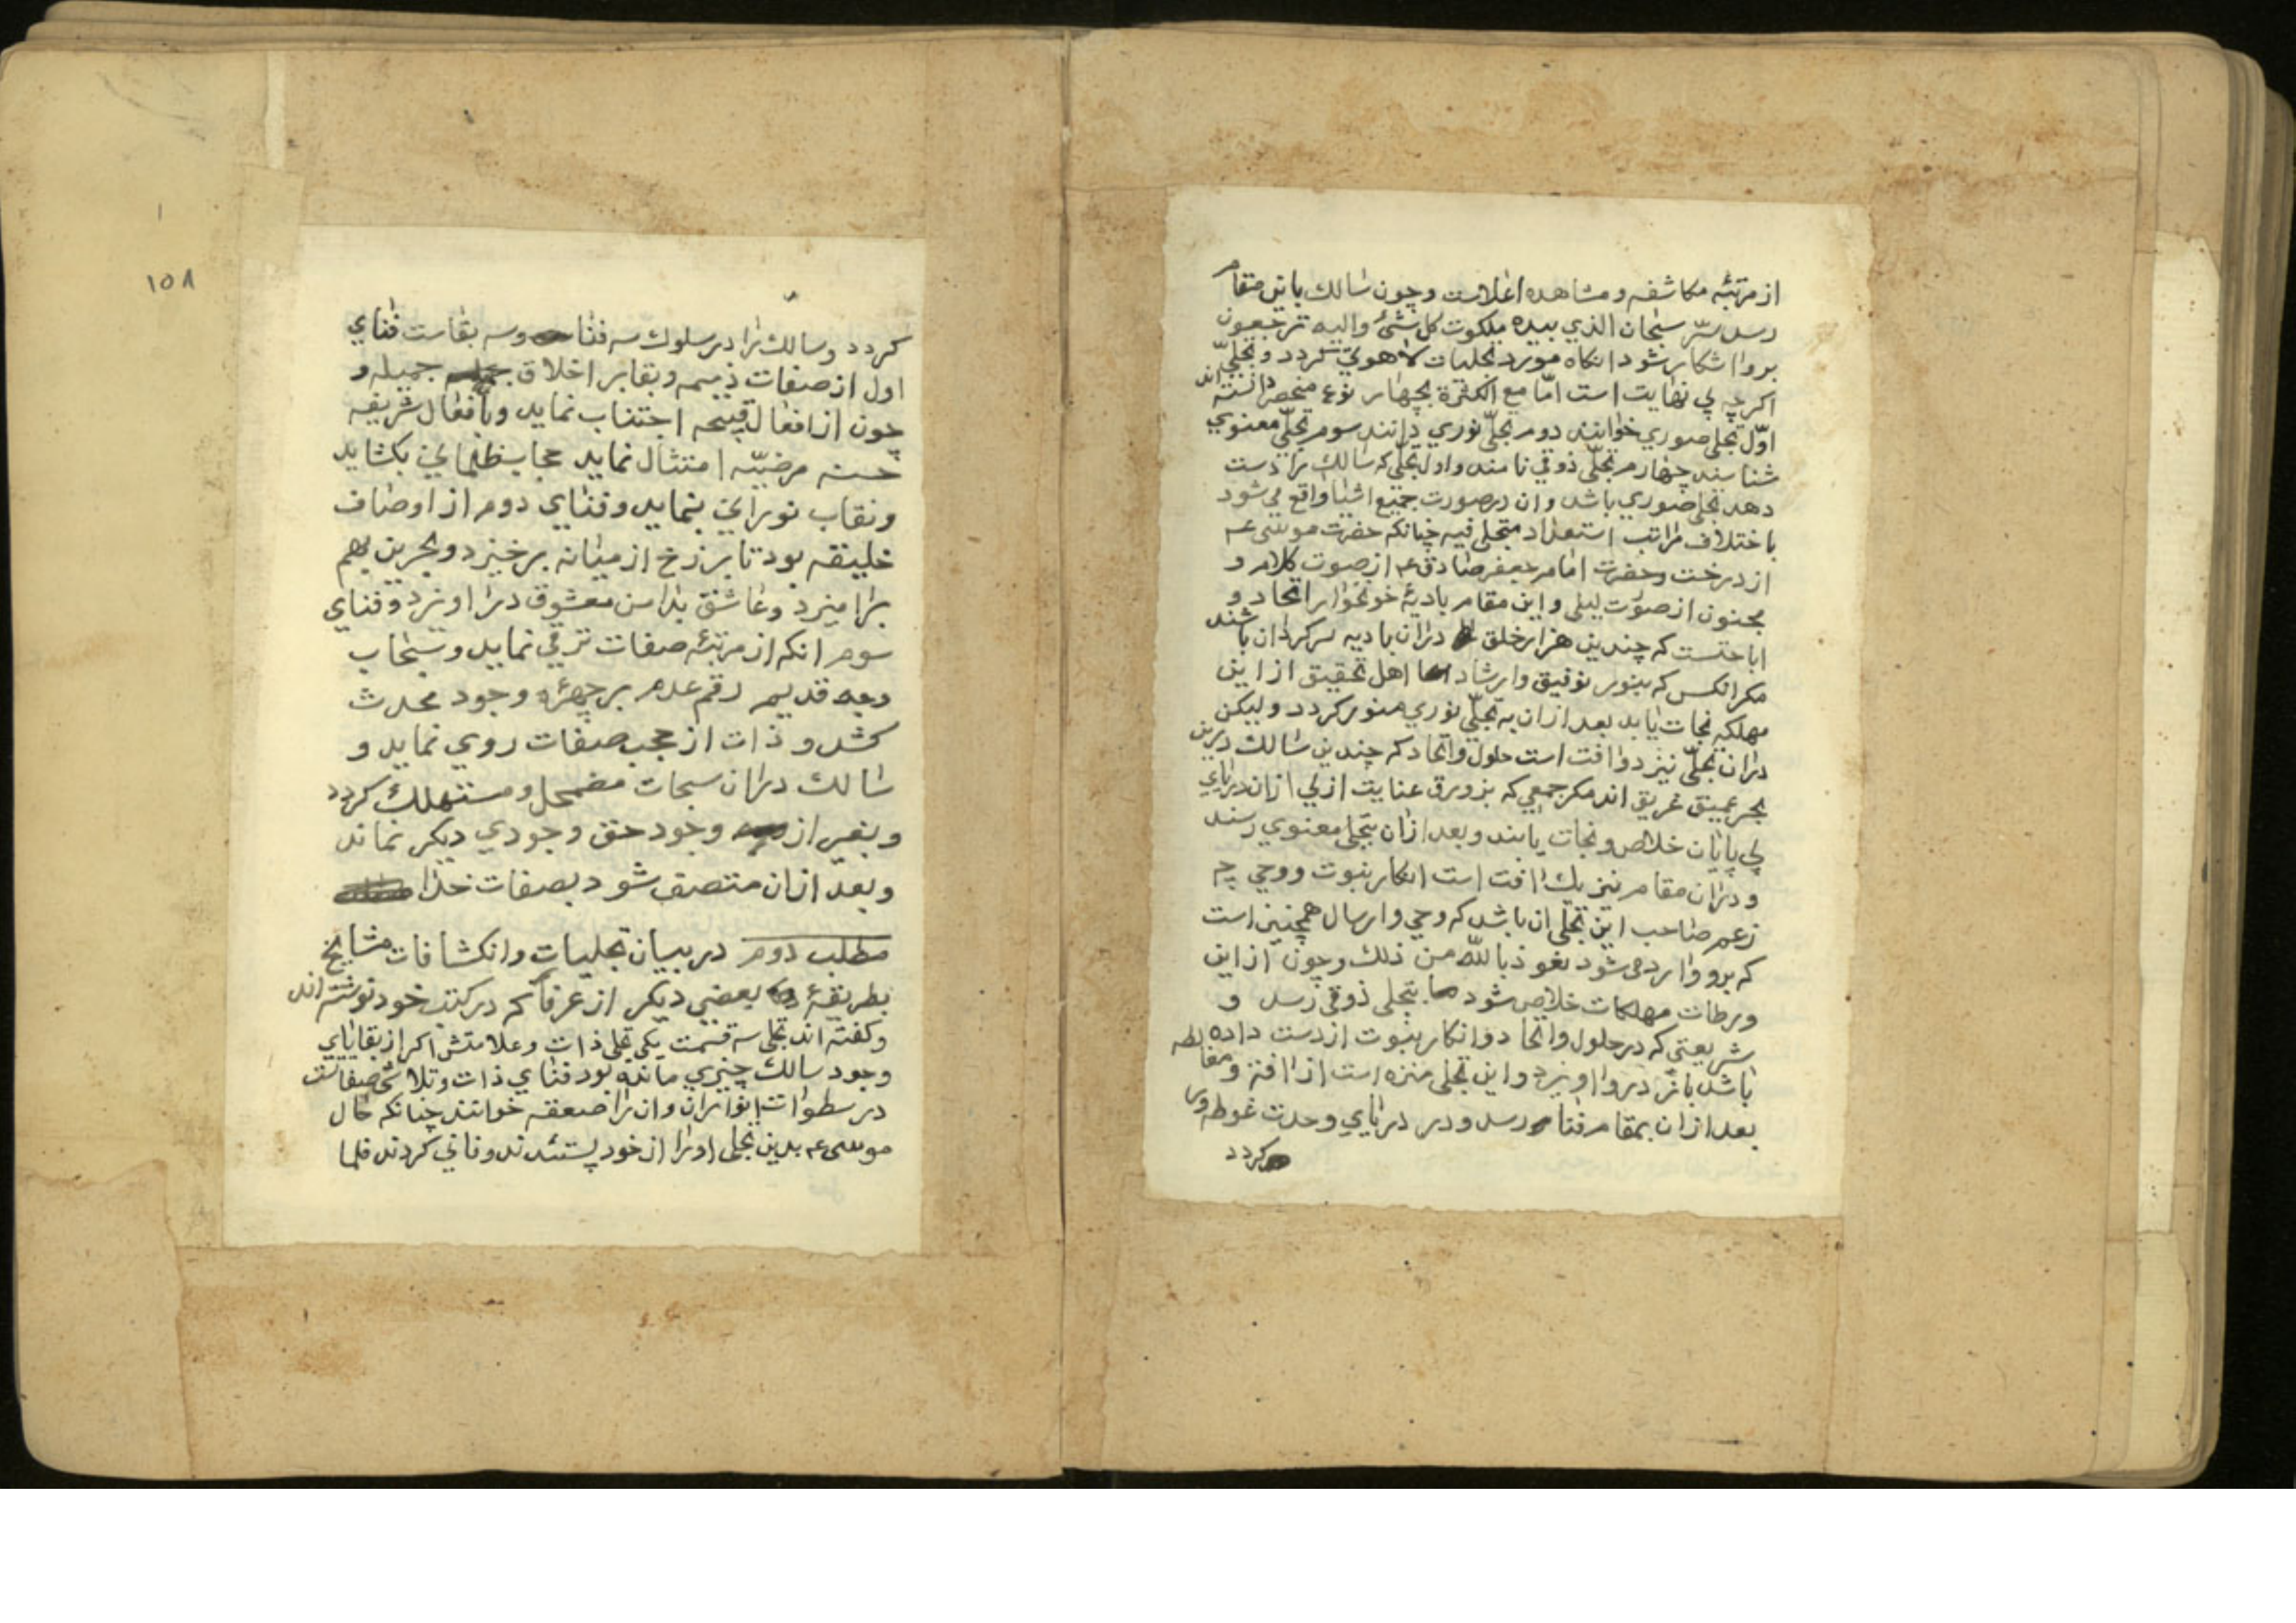 از مرتبهٔ مکاشفه و مشاهده اعلاست و چون سالک باین مقام
رسد سرّ سبحان الذي بیده ملکوت کل شئ والیه ترجعون
برو اشکار شود انکاه مورد تجلیات لاهوتي کردد و تجلیّ
اکر چه بي نهایت است امّا مع الکثرة بچهار نوع منحصر دانسته اند
اوّل تجلي صوري خوانند دوم تجلّي نوري دانند سوم تجلّي معنوي
شناسند چهارم تجلّي ذوقي نامند و اول تجلّي که سالک را دست
دهد تجلي صوري باشد و ان در صورت جمیع اشیا واقع مي شود
باختلاف مراتب استعداد متجلي فیه چنانکه حضرت موسی عم
از درخت و حضرت امام جعفر صادق عم از صوت کلام و
مجنون از صوت لیلی و این مقام بادیهٔ خونخوار اتحاد و
اباحتست که چندین هزار خلق دران بادیه سرکردان باشند
مکر انکس که بنور توفیق وارشاد اهل تحقیق از این
مهلکه نجات یابد بعد ازان به تجلّي نوري منور کردد ولیکن
دران تجلّي نیز دو افت است حلول واتحاد که چندین سالک درین
بحر عمیق غریق اند مکر جمعي که بزورق عنایت ازلي ازان دریاي
بي پایان خلاص و نجات یابند و بعد ازان بتجلي معنوي رسند
و دران مقام نیز یک افت است انکار نبوت و وحي چه
زعم صاحب این تجلي ان باشد که وحي وارسال همچنین است
که برو وارد می شود نعوذ بالله من ذلک وچون از این
ورطات مهلکات خلاص شود بتجلي ذوقي رسد و
شریعتي که در حلول واتحاد و انکار نبوت از دست داده
باشد باز درو اویزد و این تجلي منزه است از افة و مغالطه
بعد ازان بمقام فنا رسد و در دریاي وحدت غوطه ور
کردد
١٥٨
کردد و سالک را در سلوک سه فنا وسه بقاست فناي
اول از صفات ذمیمه و بقا بر اخلاق جمیله و
چون از افعال قبیحه اجتناب نماید و بافعال شریفه
حسنه مرضیّه امتثال نماید حجاب ظلماني بکشاید
و نقاب نوراني بنماید و فناي دوم از اوصاف
خلیقه بود تا برزخ از میانه برخیزد و بحرین بهم
برامیزد و عاشق بدامن معشوق دراویزد و فناي
سوم انکه از مرتبهٔ صفات ترقي نماید و سبحات
وجه قدیم رقم عدم بر چهرهٔ وجود محدث
کشد و ذات از حجب صفات روي نماید و
سالک دران سبحات مضمحل و مستهلک کردد
و بغیر از وجود حق وجودي دیکر نماند
و بعد ازان متصف شود بصفات خدا
مطلب دوم در بیان تجلیات وانکشافات مشایخ
بطریقهٔ بعضي دیکر از عرفا که در کتب خود نوشته اند
و کفته اند تجلي سه قسمت یکي تجلي ذات وعلامتش اکر از بقایاي
وجود سالک چیزي مانده بود فناي ذات و تلاشي صفاتست
در سطوات انوار ان وان را صعقه خوانند چنانکه حال
موسی عم بدین تجلي او را از خود بستند و فاني کردند فلما